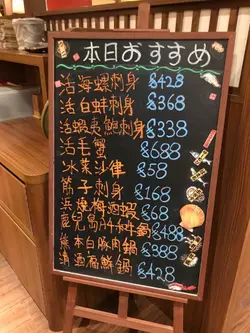 本日おすすめ
活海螺刺身 $428
活白蚌刺身 $368
活蝦夷鮑刺身 $338
活毛蟹 $688
冰菜沙律 $58
筋子刺身 $168
浜燒梅酒蝦 $68
鹿兒島A4和牛鍋 $488
熊本白豚肉鍋 $388
清酒海鮮鍋 $428